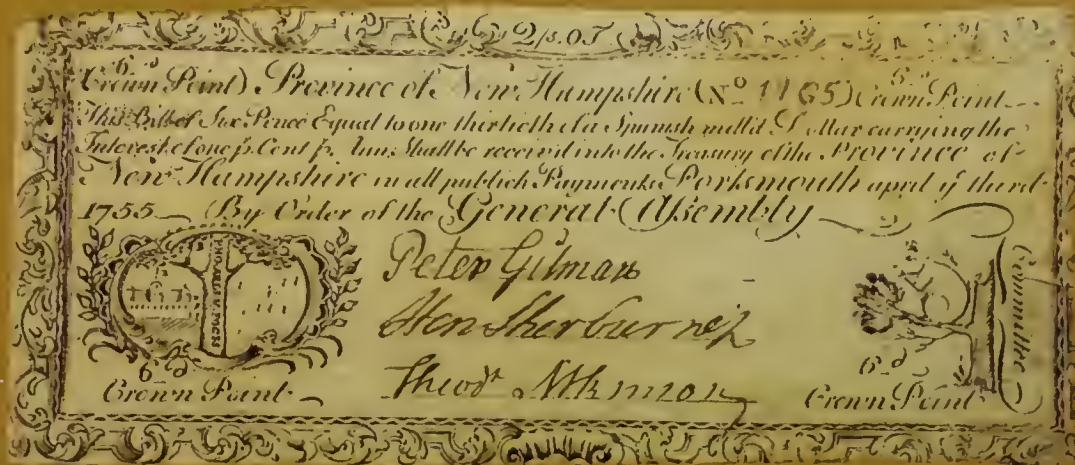 6 d 6 d
Crown Point) Province of New Hampshire (No 1165) Crown Point
This Bill of Six Pence Equal to one thirtieth of a Spanish mill'd Dollar carrying the
Interest of one p. Cent p. Ann. Shall be received into the Treasury of the Province of
New Hampshire in all publick Payments Portsmouth april ye third
1755 By Order of the General Assembly
Peter Gilman
Hen Sherburne
Theodr Atkinson
Committee
6 d
Crown Point
6 d
Crown Point